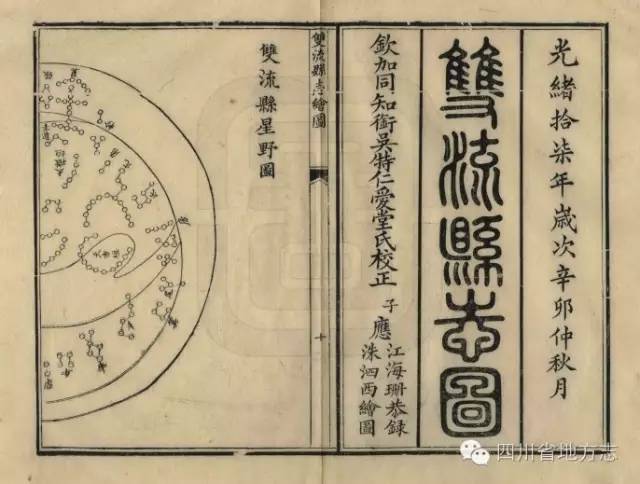 光緒拾柒年歲次辛卯仲秋月
雙流縣志圖
欽加同知銜吳特仁愛堂氏校正
子應
江海珊恭録
洙泗西繪圖
雙流縣志繪圖
十
雙流縣星野圖
四川省地方志